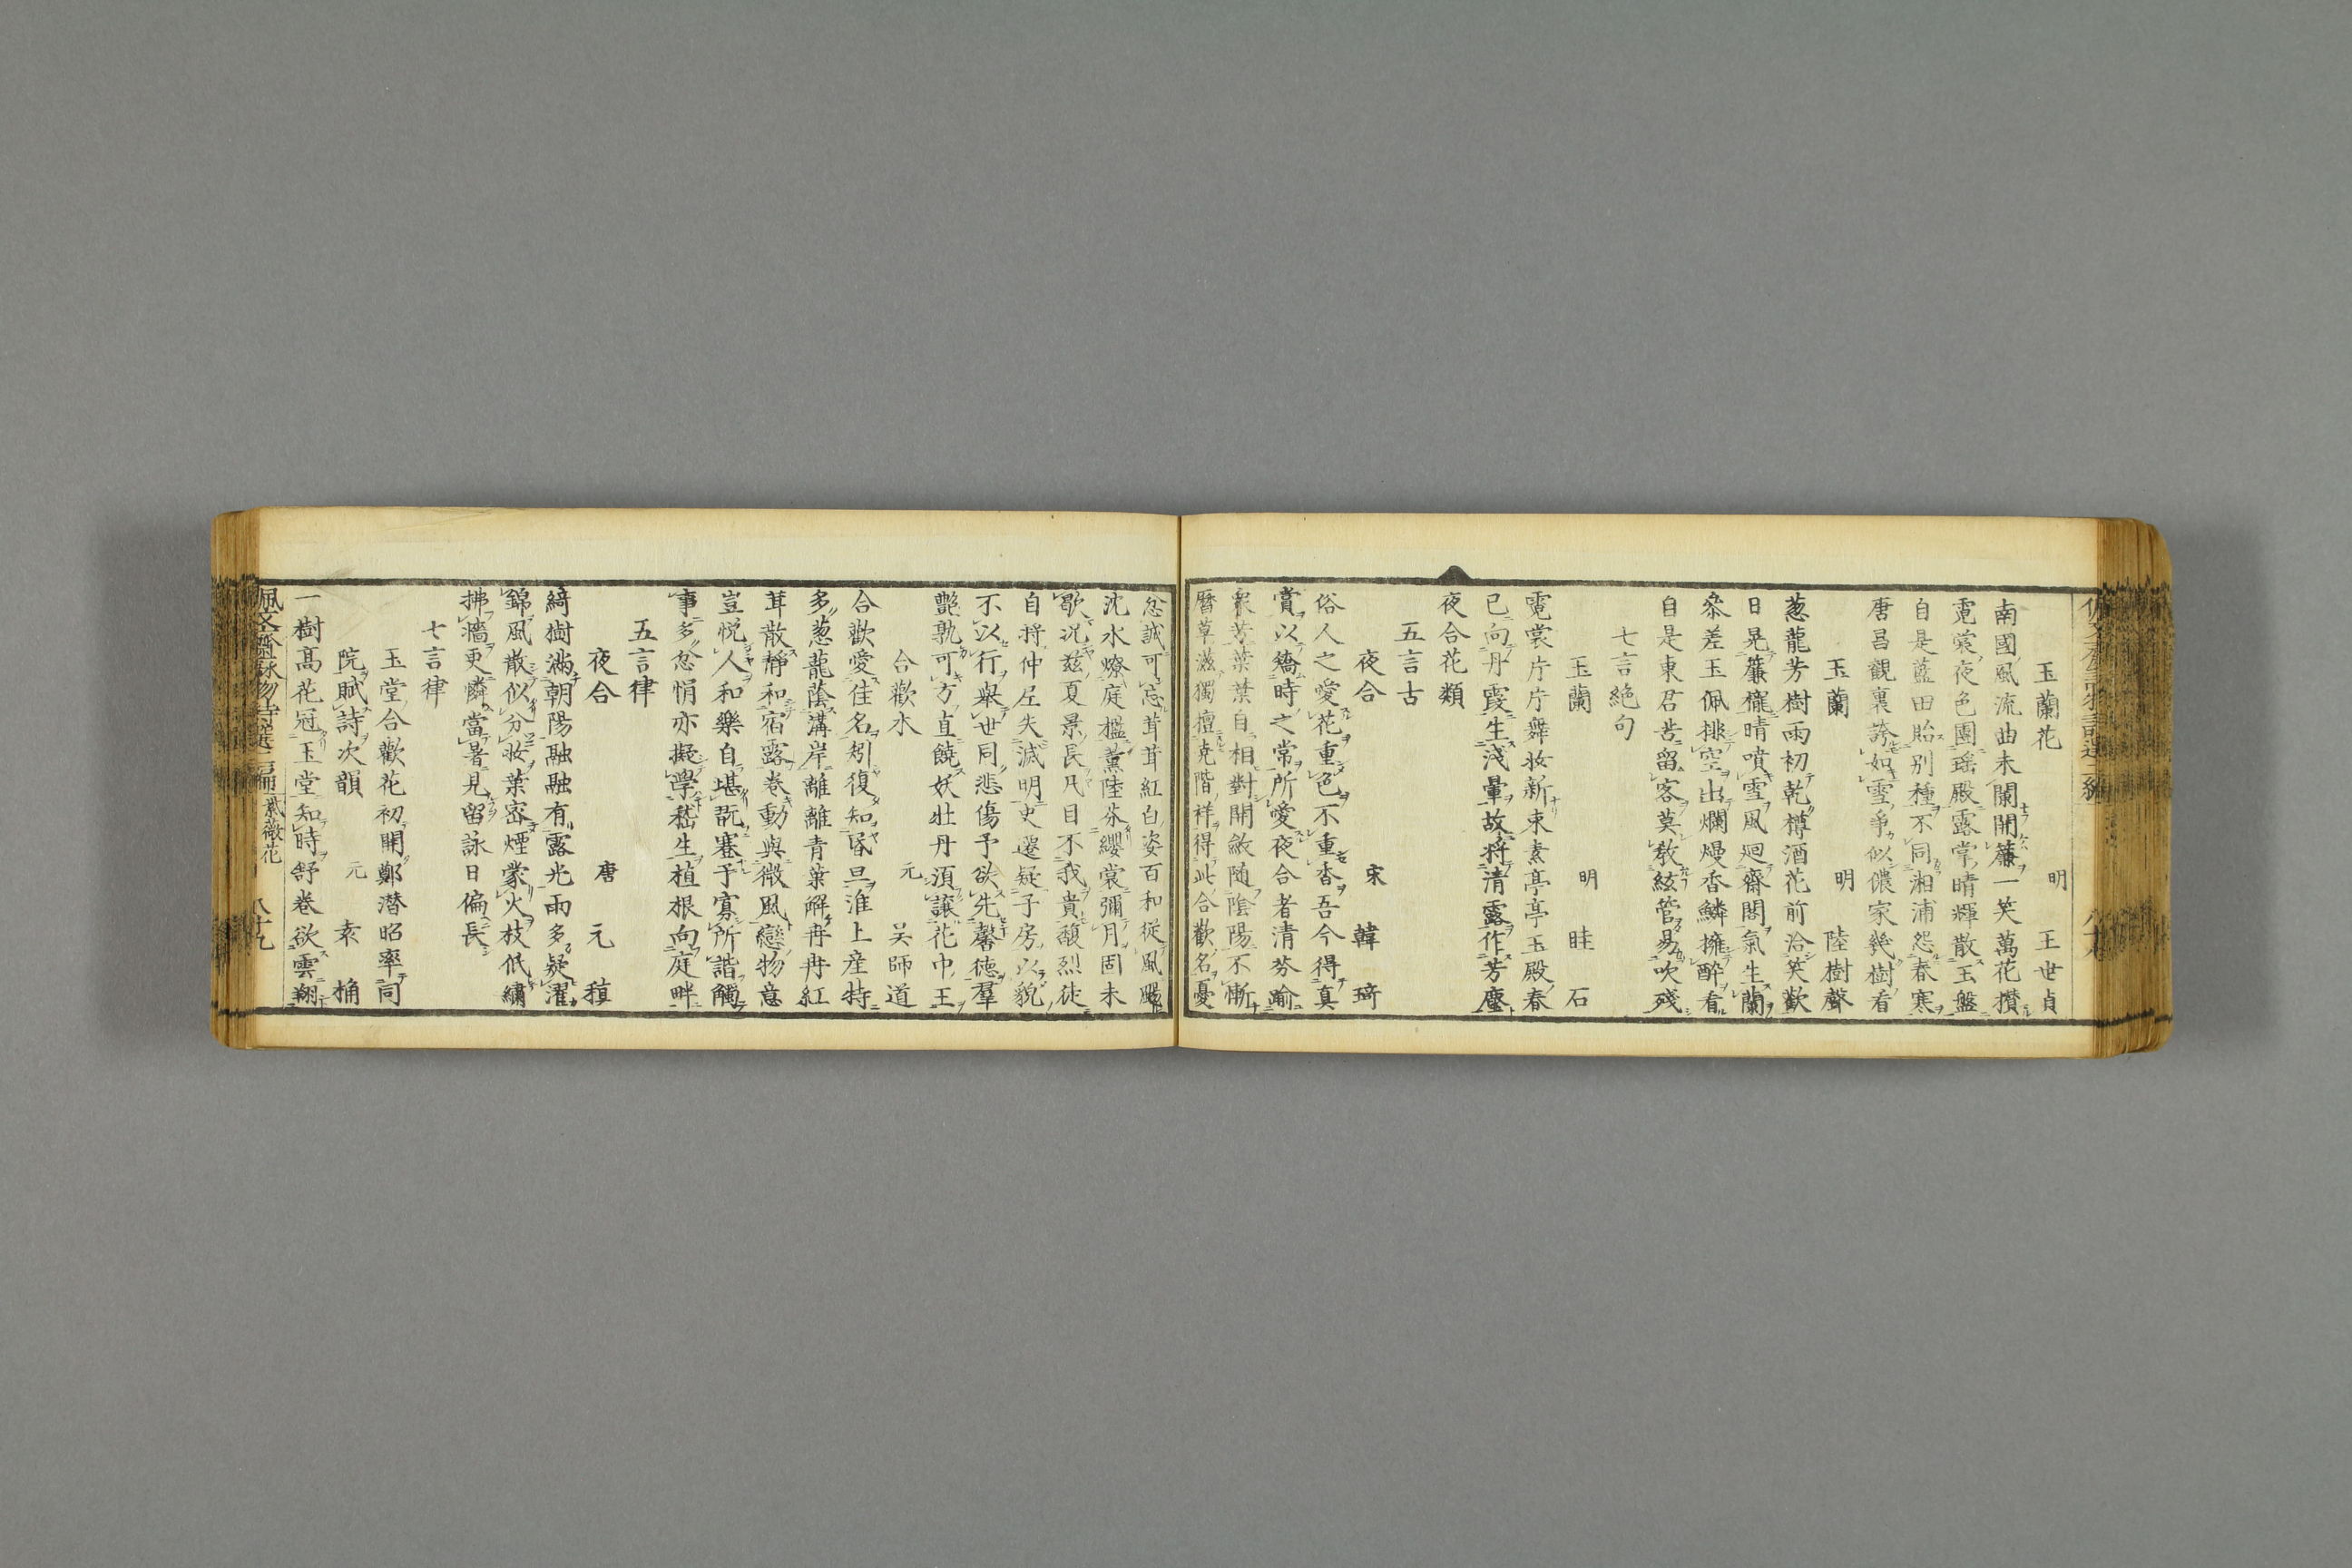 玉蘭花　明　王世貞
南國風流曲未闌開簾一笑萬花攅
霓裳夜色團瑶殿露掌晴輝散玉盤
自是藍田貽别種不同湘浦怨春寒
唐昌觀裏誇如雪爭似儂家幾樹看
玉蘭　明　陸樹聲
葱蘢芳樹雨初乾樽酒花前洽笑歡
日晃簾櫳晴噴雪風廻齋閣氣生蘭
叅差玉佩排空出爛熳香鱗擁醉看
自是東君苦留客莫敎絃管易吹殘
七言絶句
玉蘭　明　眭　石
霓裳片片舞妝新束素亭亭玉殿春
已向丹霞生淺暈故將清露作芳塵
夜合花類
五言古
夜合　宋　韓　琦
俗人之愛花重色不重香吾今得真
賞以矯時之常所愛夜合者清芬踰
衆芳葉葉自相對開斂随陰陽不慚
暦草滋獨擅尭階祥得此合歡名憂
忿誠可忘茸茸紅白姿百和従風颺
沈水燎庭檻薫陸芬纓裳彌月固未
歇況兹夏景長凡目不我貴馥烈徒
自将仲尼失滅明史遷疑子房以貌
不以行舉世同悲傷予欲先馨徳羣
艶孰可方直饒妖牡丹湏譲花中王
合歡木　元　吴師道
合歡愛佳名矧復知昏旦淮上産特
多葱蘢蔭溝岸離離青葉解冉冉紅
茸散靜和宿露巻動與微風戀物意
豈悦人和樂自堪翫蹇予寡所諧觸
事多忿悁亦擬學嵇生植根向庭畔
五言律
夜合　唐　元　稹
綺樹滿朝陽融融有露光雨多疑濯
錦風散似分妝葉密煙蒙火枝低繡
拂墻更憐當暑見留詠日偏長
七言律
玉堂合歡花初開鄭潛昭率同
院賦詩次韻　元　袁　桷
一樹髙花冠玉堂知時舒巻欲雲翔
佩文齋詠物詩選二編　紫薇花　八十九